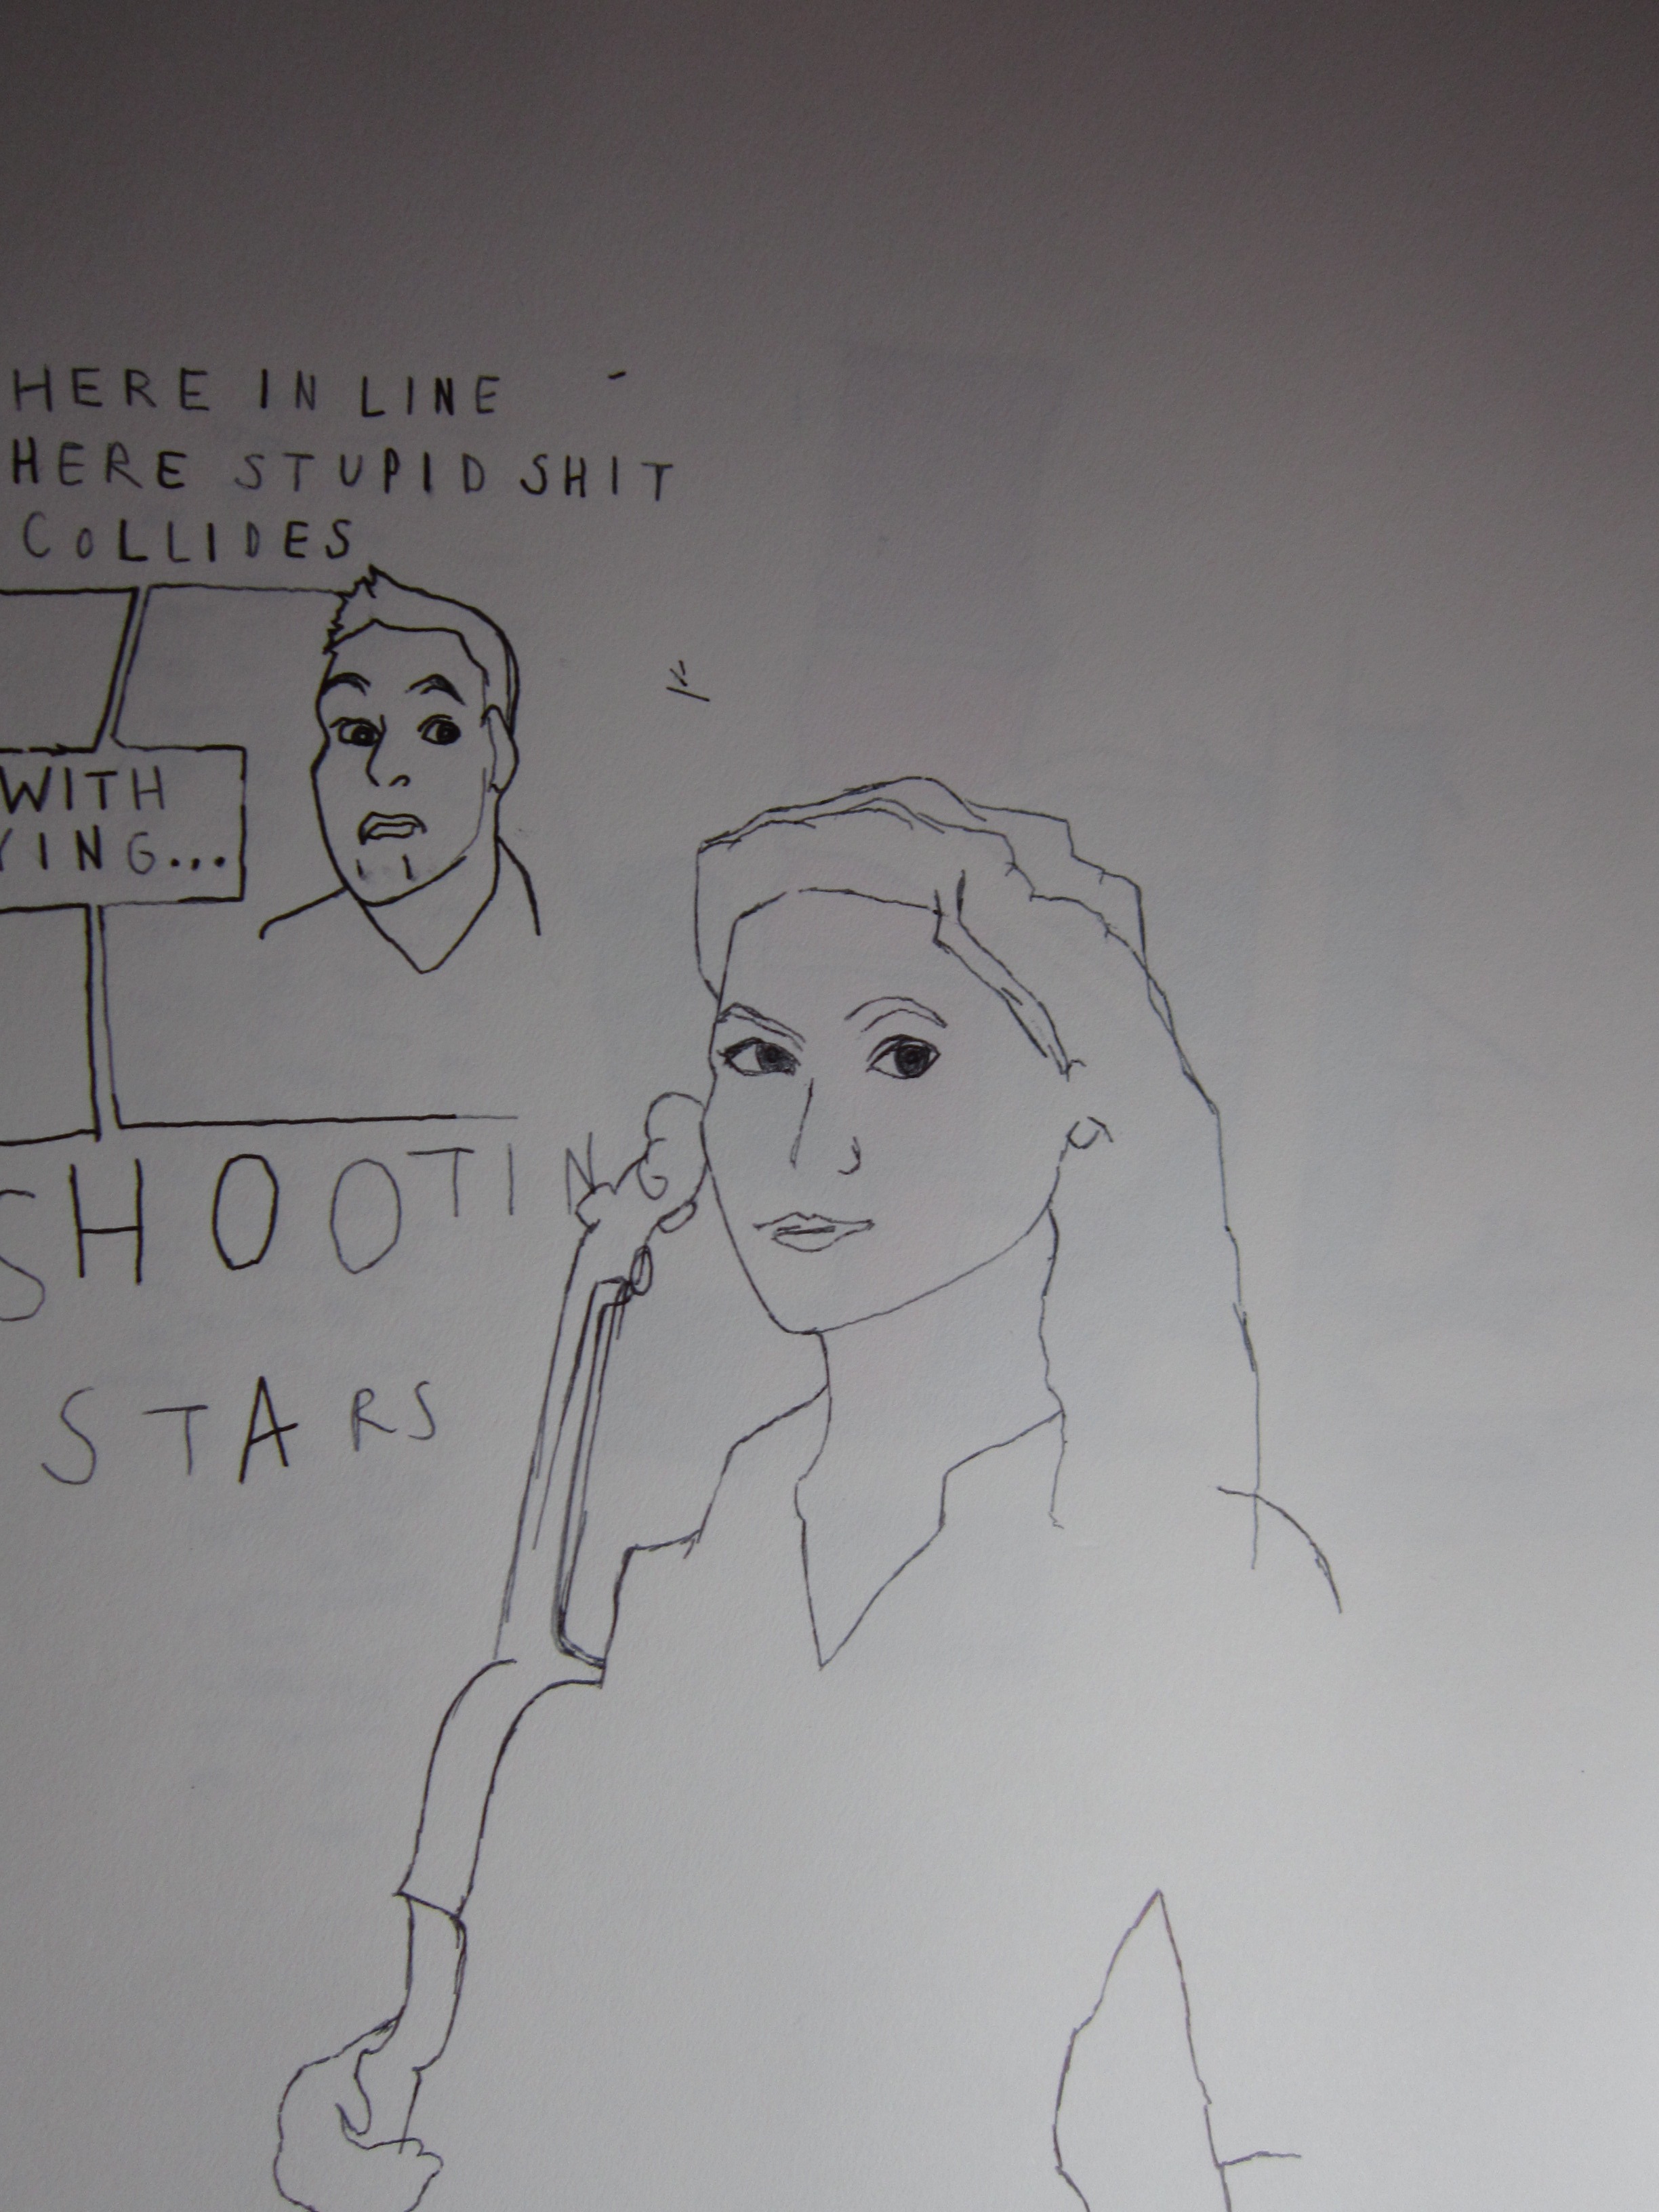 HERE IN LINE
HERE STUPID SHIT
COLLIDES
WITH
YING...
SHOOTING
STARS